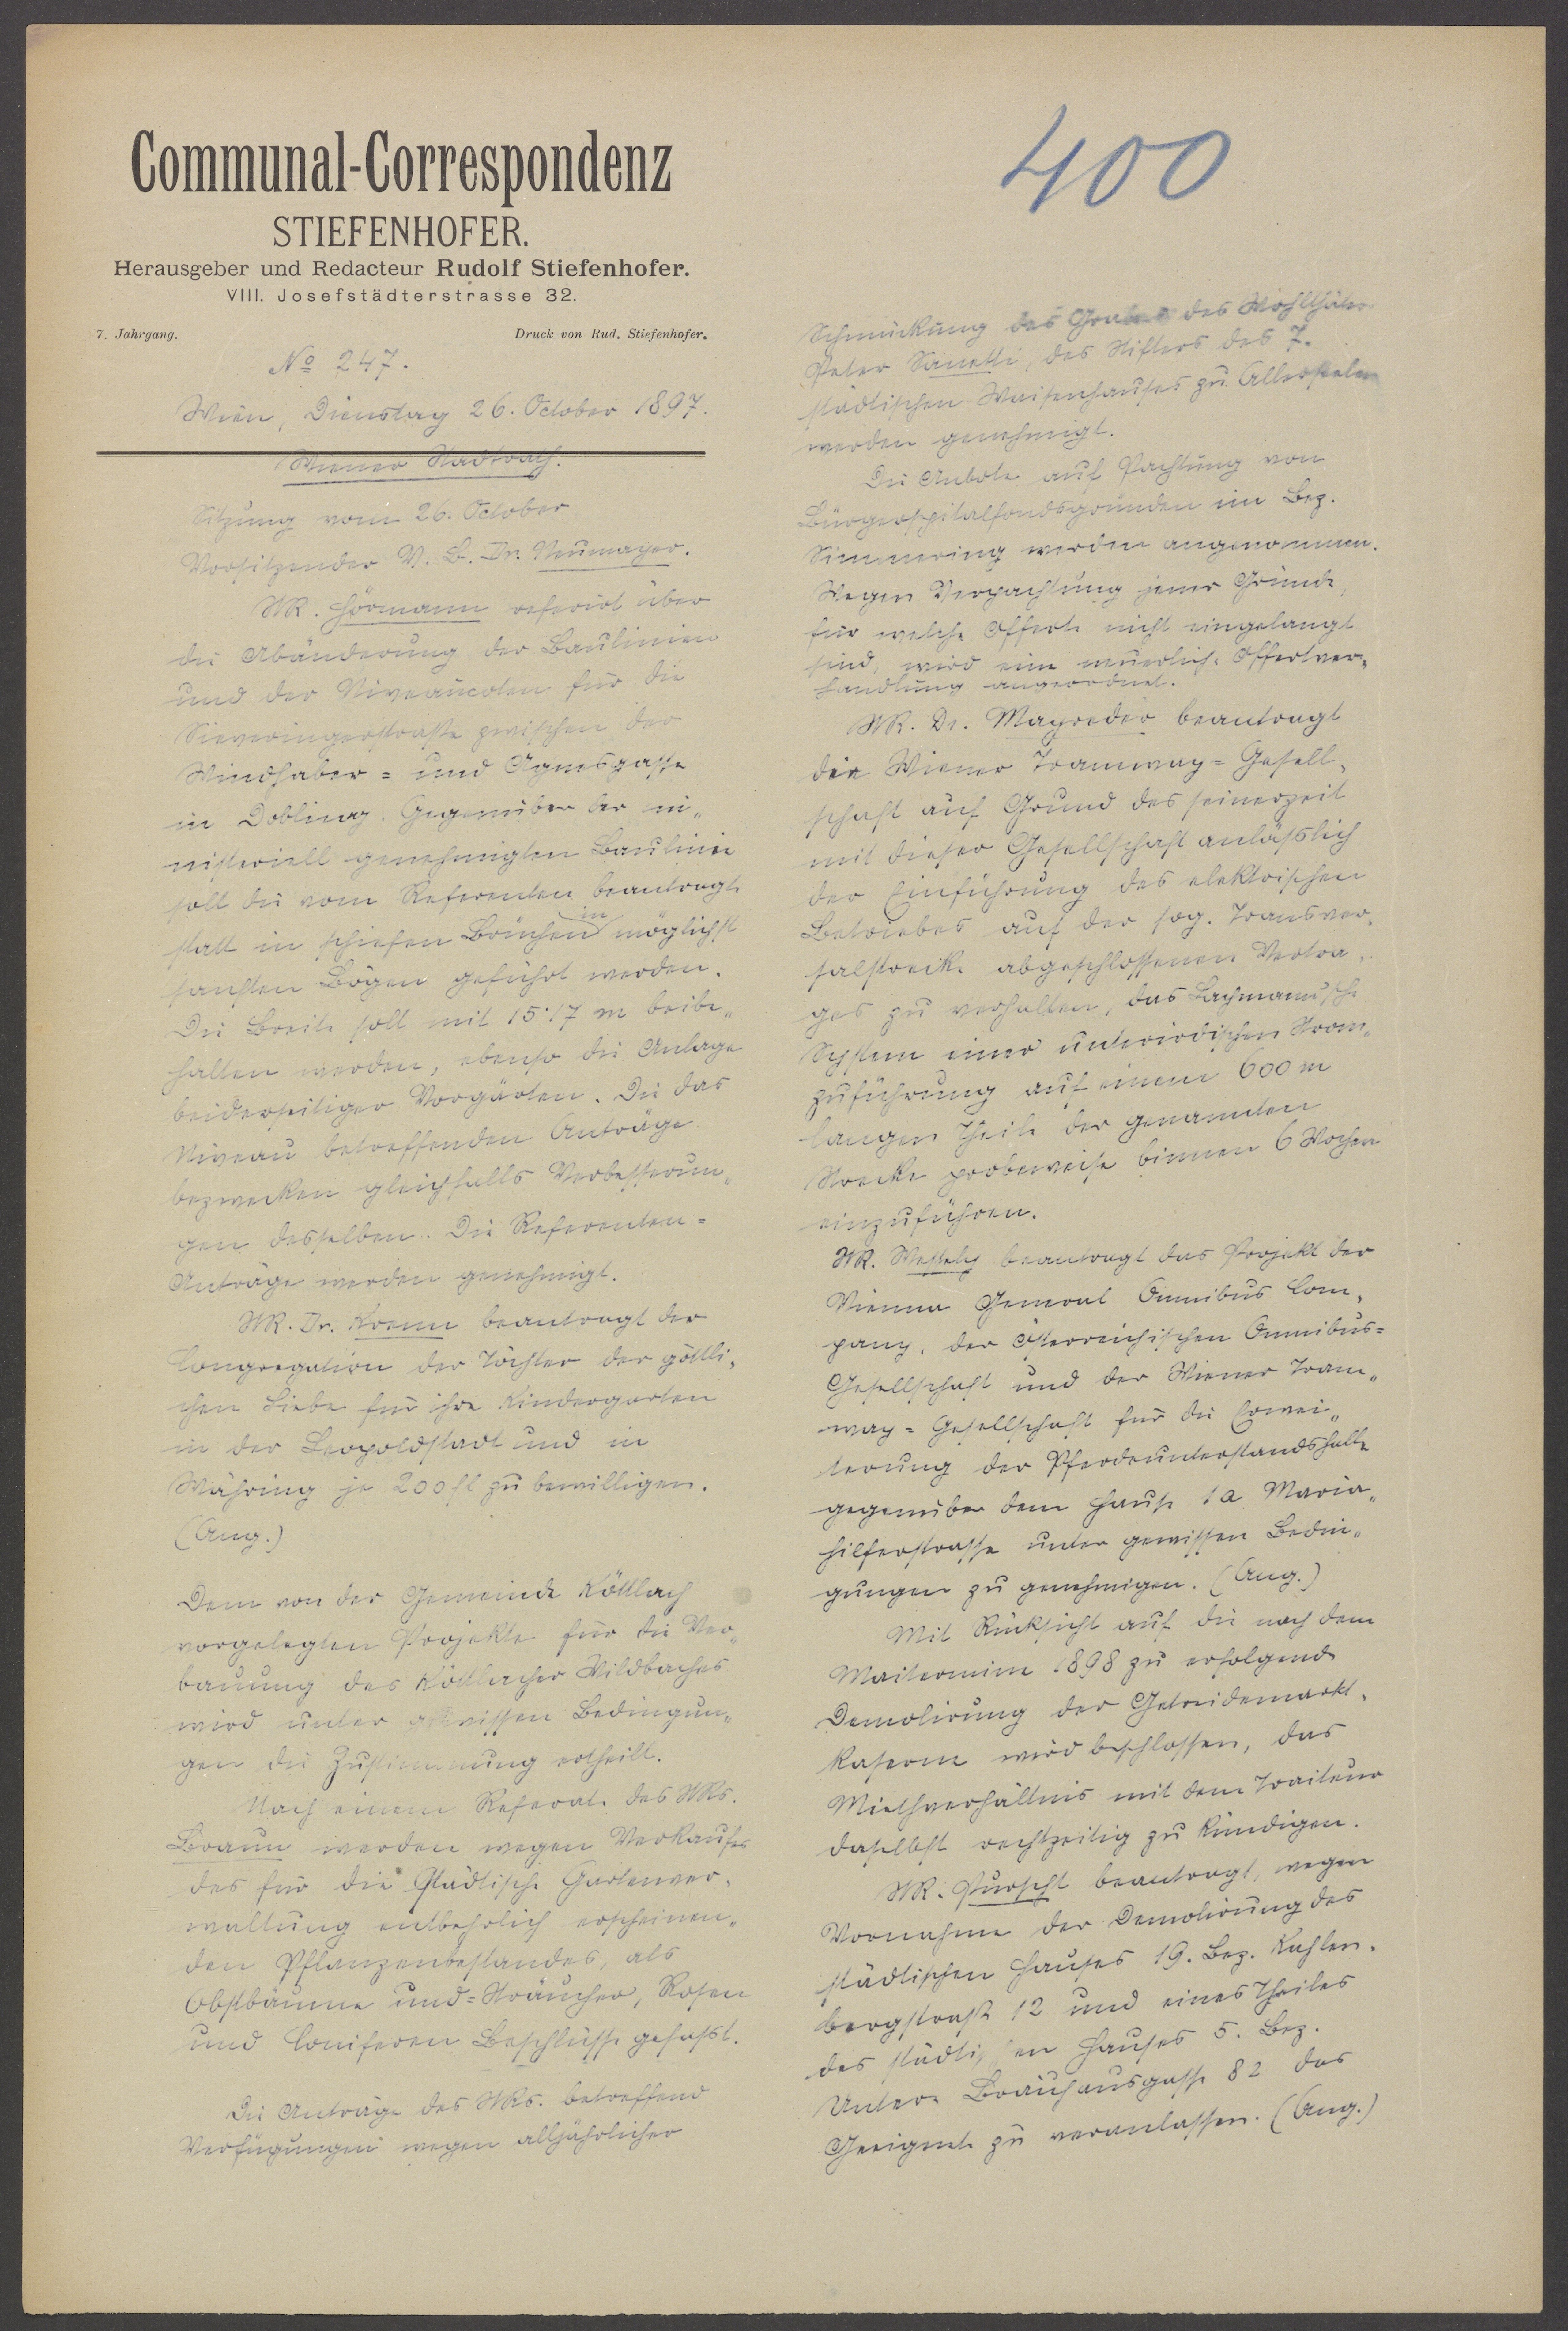 Communal-Correspondenz
STIEFENHOFER.
Herausgeber und Redacteur Rudolf Stiefenhofer.
VIII. Josefstädterstrasse 32.
7. Jahrgang. Druck von Rud. Stiefenhofer.
No 247.
Wien, Dienstag 26. October 1897.
Wiener Stadtrath.
Sitzung vom 26. October
Vorsitzender V. B. Dr. Neumayer.
StR. Hörmann referirt über
die Abänderung der Baulinien
und der Niveaucoten für die
Sieveringerstraße zwischen der
Windhaber- und Agnesgasse
in Döbling. Gegenüber der mi„
nisteriell genehmigten Baulinie
soll die vom Referenten beantragte
statt in schiefen Brüchen in möglichst
sanften Bögen geführt werden.
Die Breite soll mit 15·17 m beibe„
halten werden, ebenso die Anlage
beiderseitiger Vorgärten. Die das
Niveau betreffenden Anträge
bezwecken gleichfalls Verbesserun„
gen desselben. Die Referenten-
Anträge werden genehmigt.
StR. Dr. Krenn beantragt der
Congregation der Töchter der göttli„
chen Liebe für ihre Kindergarten
in der Leopoldstadt und in
Währing je 200 fl zu bewilligen.
(Ang.)
Dem von der Gemeinde Köttlach
vorgelegten Projekte für die Ver„
bauung des Köttlacher Wildbaches
wird unter gewissen Bedingun„
gen die Zustimmung ertheilt.
Nach einem Referate des StRs.
Braun werden wegen Verkaufes
des für die städtische Gartenver„
waltung entbehrlich erscheinen„
den Pflanzenbestandes, als
Obstbäume und -Sträucher, Rosen
und Coniferen Beschlüsse gefasst.
Die Anträge des StRs. betreffend
Verfügungen wegen alljährlicher
400
Schmückung des Grabes des Wohlthäters
Peter Sanetti, des Stifters des 7.
städtischen Waisenhauses zu Allerseelen
werden genehmigt.
Die Anbote auf Pachtung von
Bürgerspitalfondsgründen im Bez.
Simmering werden angenommen.
Wegen Verpachtung jener Gründe,
für welche Offerte nicht eingelangt
sind, wird eine neuerliche Offertver„
handlung angeordnet.
StR. Dr. Mayreder beantragt
die Wiener Tramway-Gesell„
schaft auf Grund des seinerzeit
mit dieser Gesellschaft anläßlich
der Einführung des elektrischen
Betriebes auf der sog. Transver„
salstrecke abgeschlossenen Vertra„
ges zu verhalten, das Lachmann'sche
System einer unterirdischen Strom„
zuführung auf einem 600 m
langen Theile der genannten
Strecke probeweise binnen 6 Wochen
einzuführen.
StR. Wessely beantragt das Projekt der
Vienna General Omnibus Com„
pany, der österreichischen Omnibus-
Gesellschaft und der Wiener Tram„
way-Gesellschaft für die Erwei„
terung der Pferdeunterstandshalle
gegenüber dem Hause 1a Maria„
hilferstrasse unter gewissen Bedin„
gungen zu genehmigen. (Ang.)
Mit Rücksicht auf die nach dem
Maitermine 1898 zu erfolgende
Demolirung der Getreidemarkt„
kaserne wird beschlossen, das
Miethverhältnis mit dem Traiteur
daselbst rechtzeitig zu kündigen.
StR. Purscht beantragt, wegen
Vornahme der Demolirung des
städtischen Hauses 19. Bez. Kahlen„
bergstraße 12 und eines Theiles
des städtischen Hauses 5. Bez.
Untere Bräuhausgasse 82 das
Geeignete zu veranlassen. (Ang.)